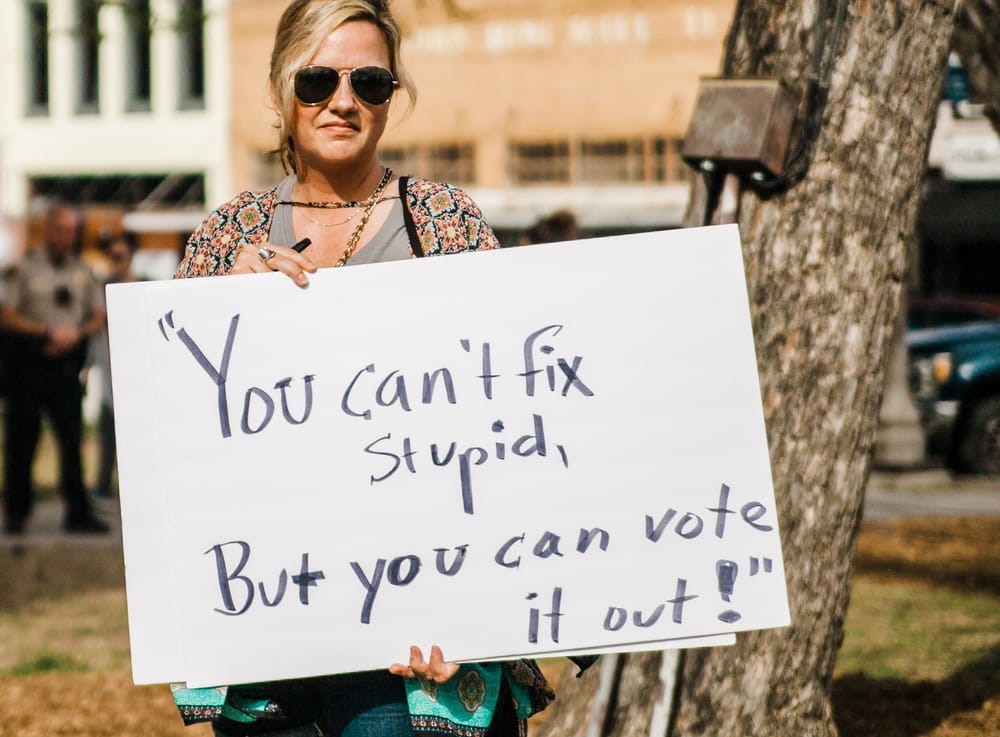 "You can't fix
stupid,
But you can vote
it out!"